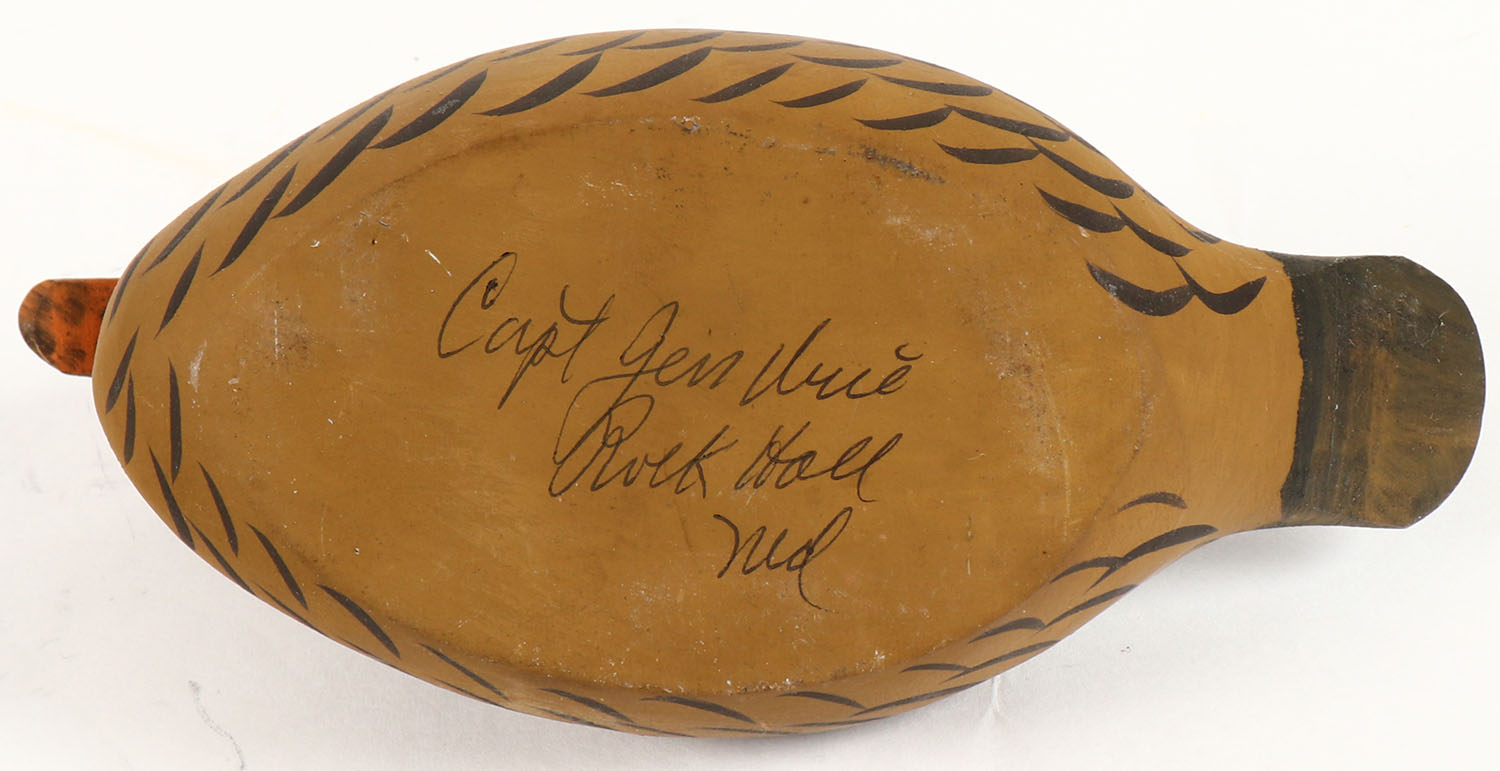 Capt Jess Urie
Rock Hall
Md